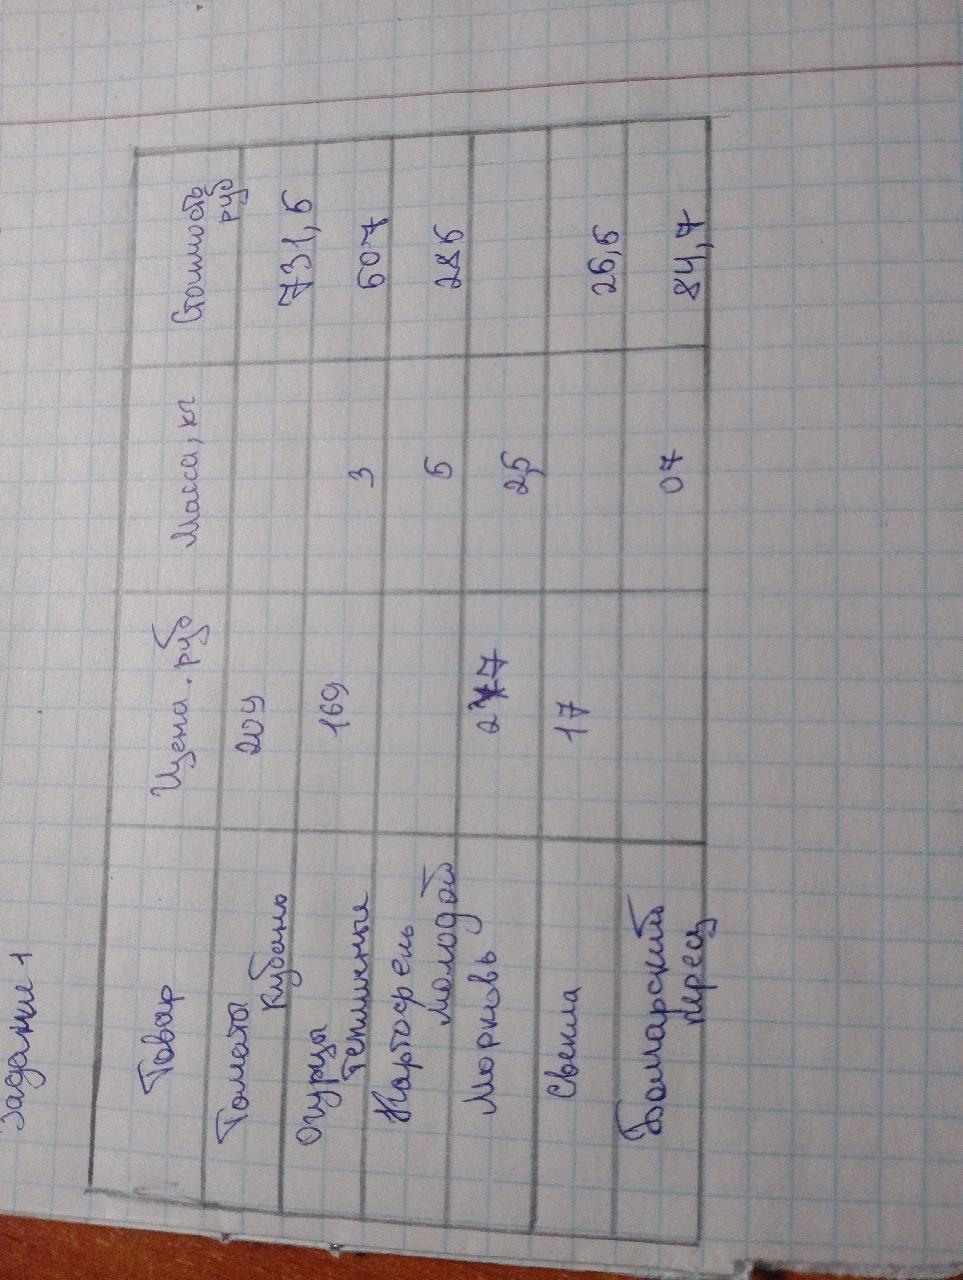 Задание 1
Товар Цена. руб Масса, кг Стоимость руб
Томаты Кубань 209 731,5
Огурцы Тепличные 169 3 507
Картофель молодой 5 285
Морковь 27 2,5
Свекла 17 26,5
Болгарский перец 07 84,7